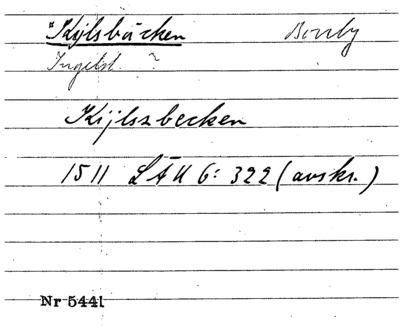 "Kylsbäcken Bonby
Ingelst. ?
Kijlszbecken
1511 LÄU 6: 322 (avskr.)
Nr 5441